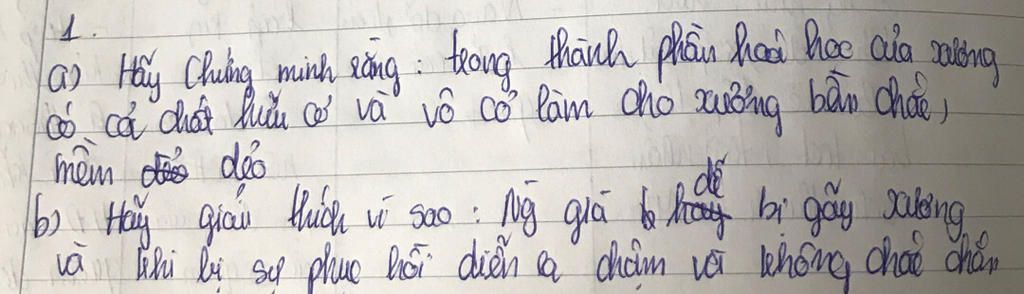 1.
a) Hãy Chứng minh rằng : trong thành phần hoá học của xương
có cả chất hữu cơ và vô cơ làm cho xương bền chắc,
mềm dẻo
b) Hãy giải thích vì sao : Ng già dễ bị gãy xương
và khi bị sự phục hồi diễn ra chậm và không chắc chắn